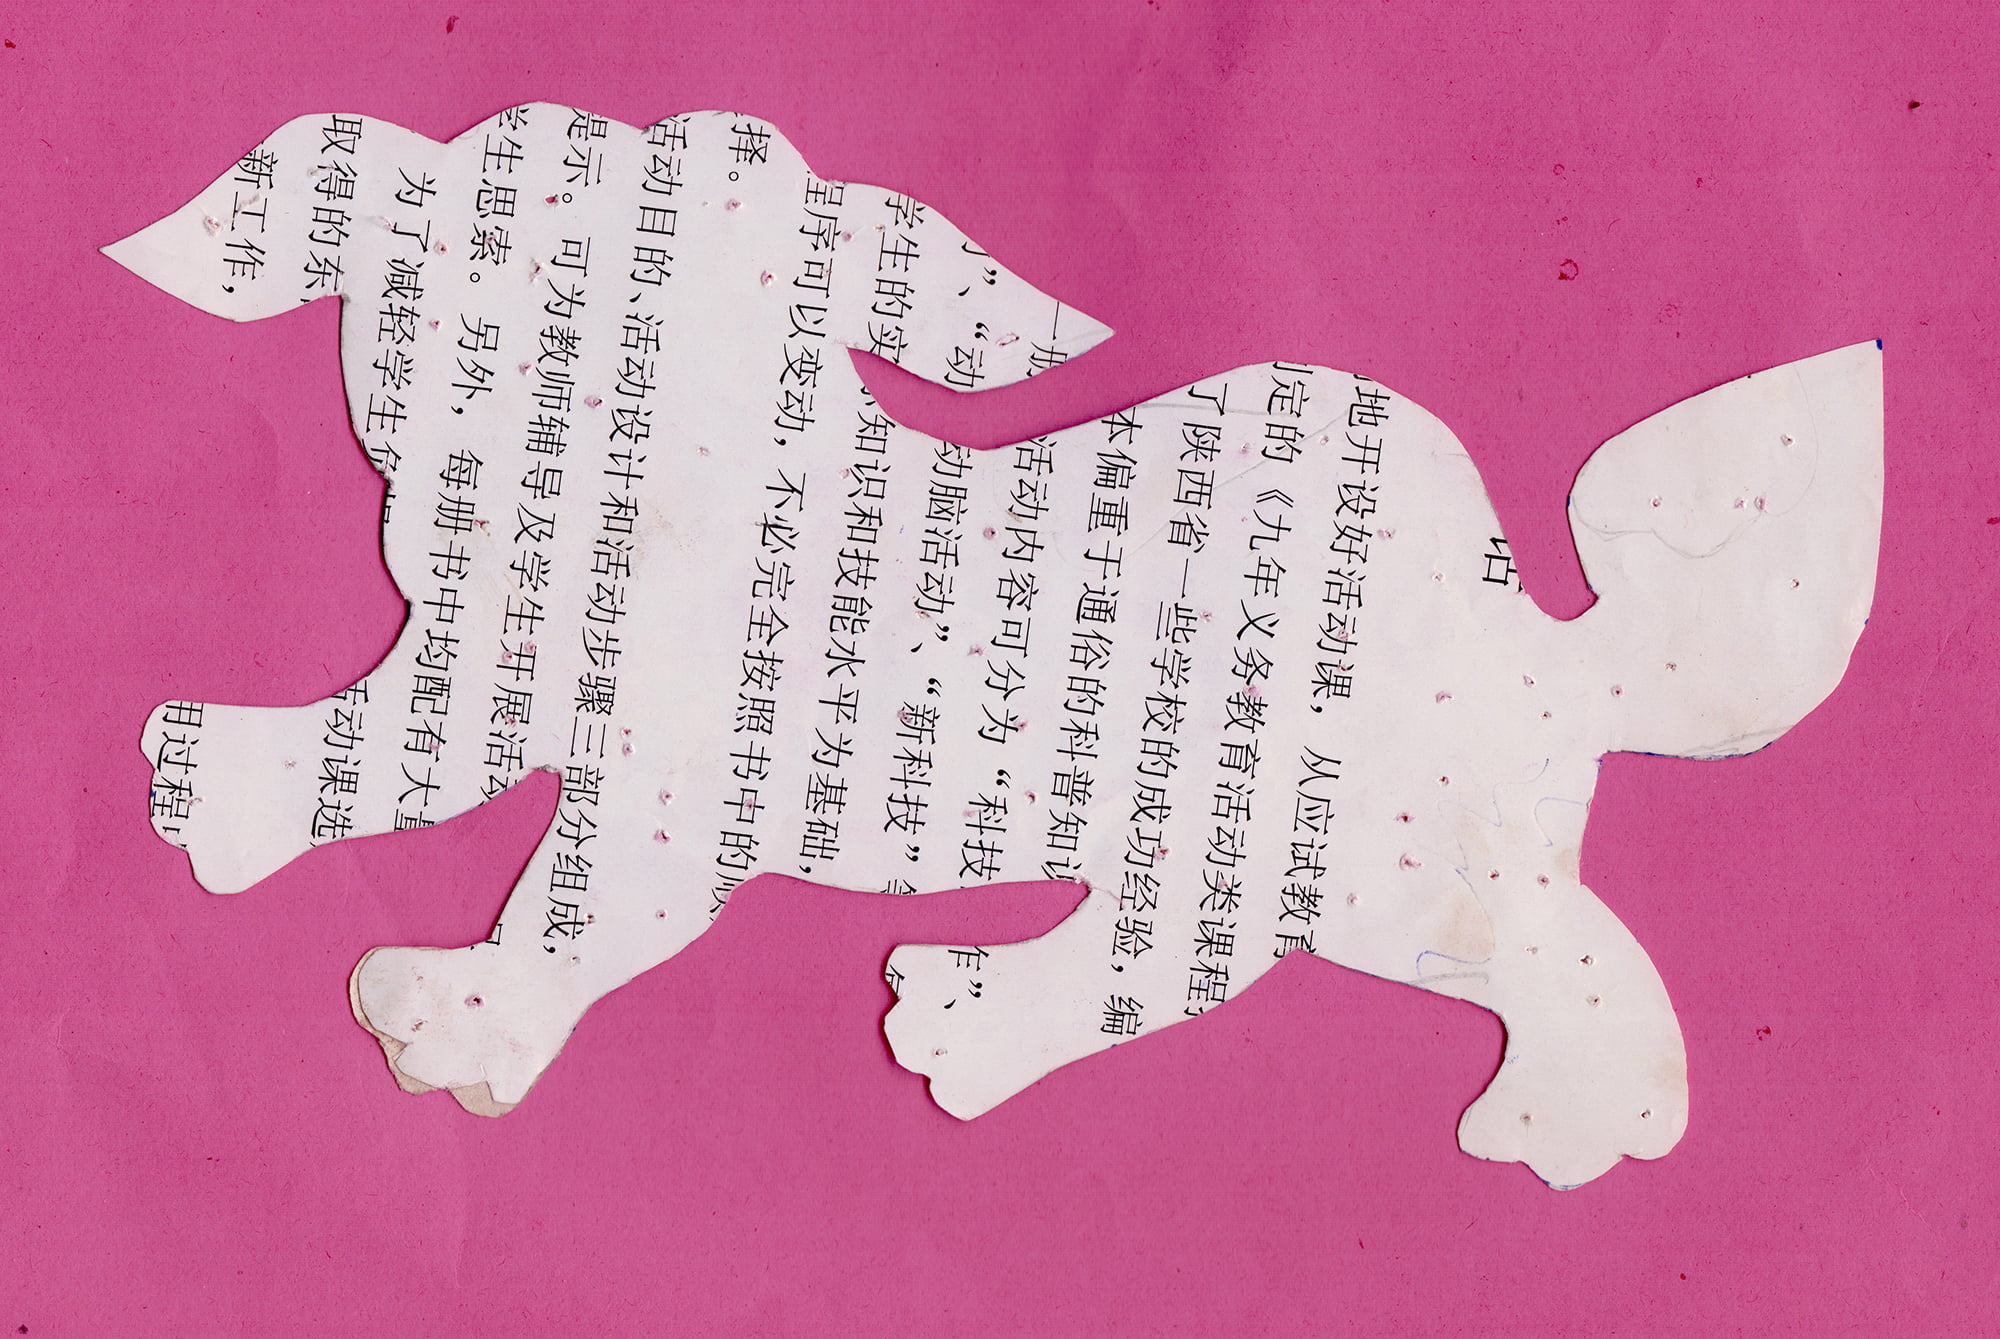 地开设好活动课，从应试教育
定的《九年义务教育活动类课程
了陕西省一些学校的成功经验，编
本偏重于通俗的科普知识
一册 活动内容可分为“科技 作”、
”、“动 动脑活动”、“新科技”等
学生的实 知识和技能水平为基础，
程序可以变动，不必完全按照书中的顺
择。
活动目的、活动设计和活动步骤三部分组成，
示。可为教师辅导及学生开展活动
学生思索。另外，每册书中均配有大量
为了减轻学生负 活动课选
取得的东 用过程
新工作，